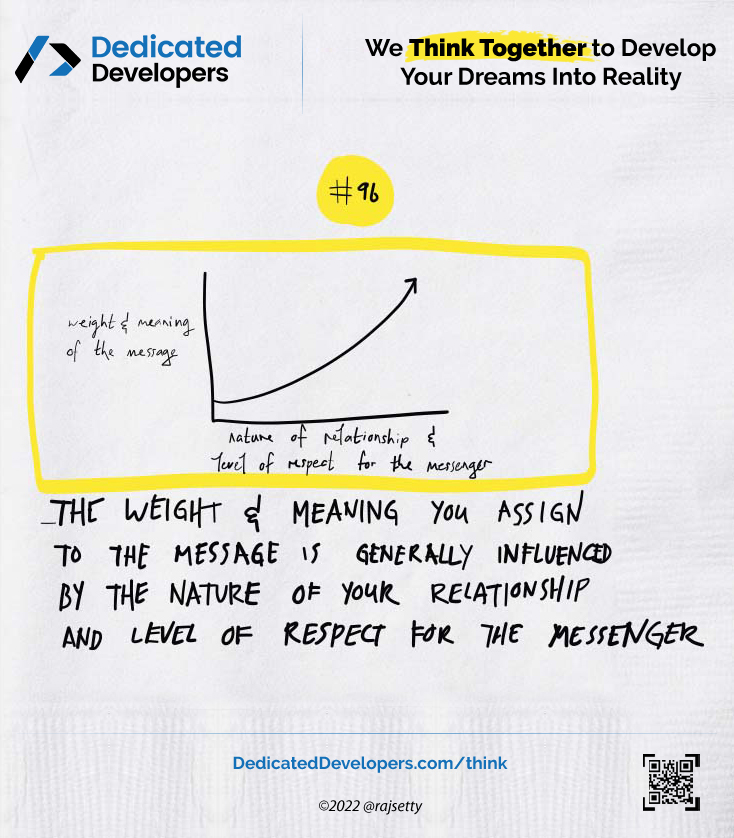 Dedicated
Developers
We Think Together to Develop
Your Dreams Into Reality
#96
weight & meaning
of the message
nature of relationship &
level of respect for the messenger
THE WEIGHT & MEANING YOU ASSIGN
TO THE MESSAGE IS GENERALLY INFLUENCED
BY THE NATURE OF YOUR RELATIONSHIP
AND LEVEL OF RESPECT FOR THE MESSENGER
DedicatedDevelopers.com/think
©2022 @rajsetty